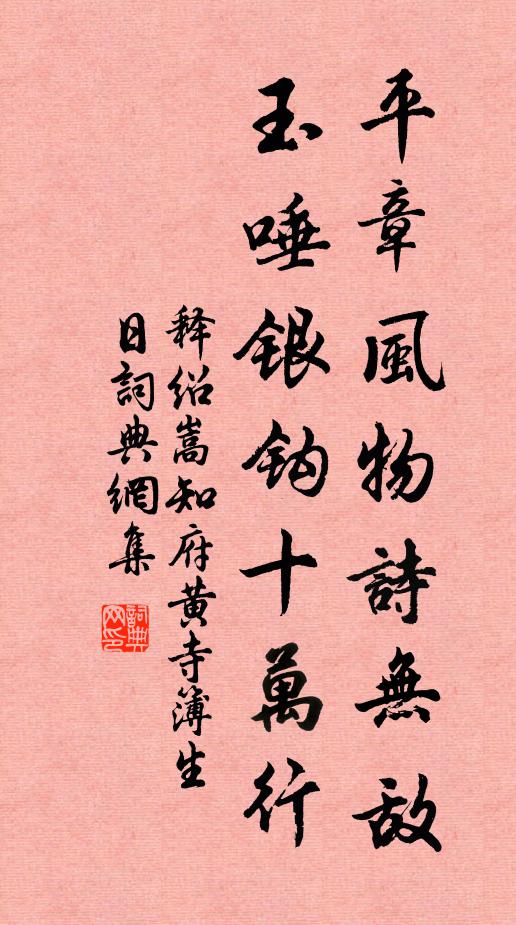 平章風物詩無敌
玉唾銀鈎十萬行
释绍嵩知府黄寺簿生
日詞典網集
詞典网印